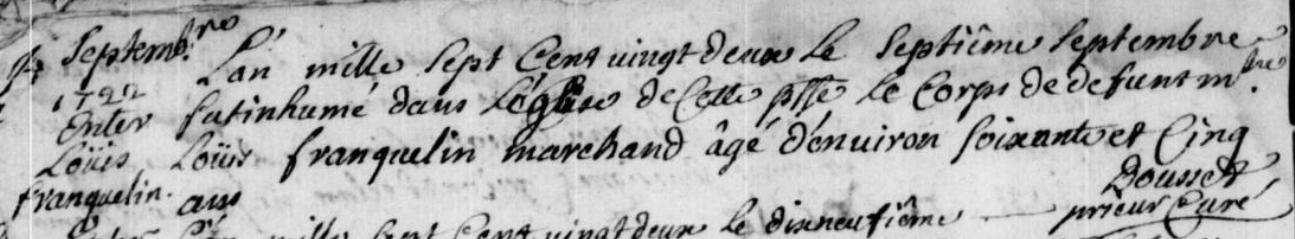 7 Septembre
1722
Enter
Loüis
franquelin.
L'an mille Sept Cent vingt deux le Septiême Septembre
fut inhumé dans l'église de Cette psse le Corps de defunt mtre
Loüis franquelin marchand âgé d'environ soixante et Cinq
ans
Dousset
prieur Curé
L'an mille Sept Cent vingt deux le dixneufiême